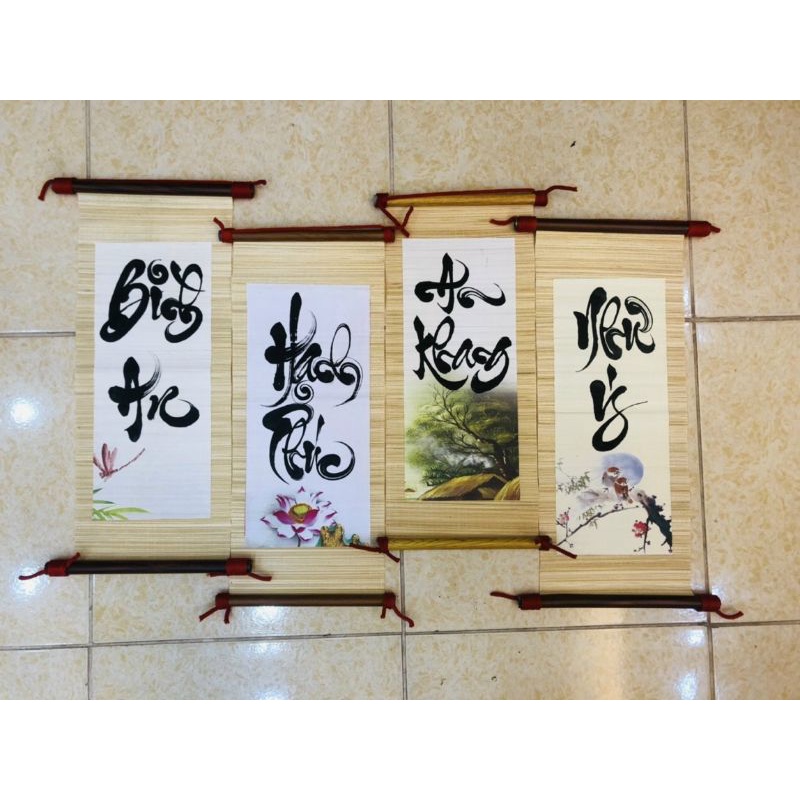 Bình
An
Hạnh
Phúc
An
Khang
Như
Ý